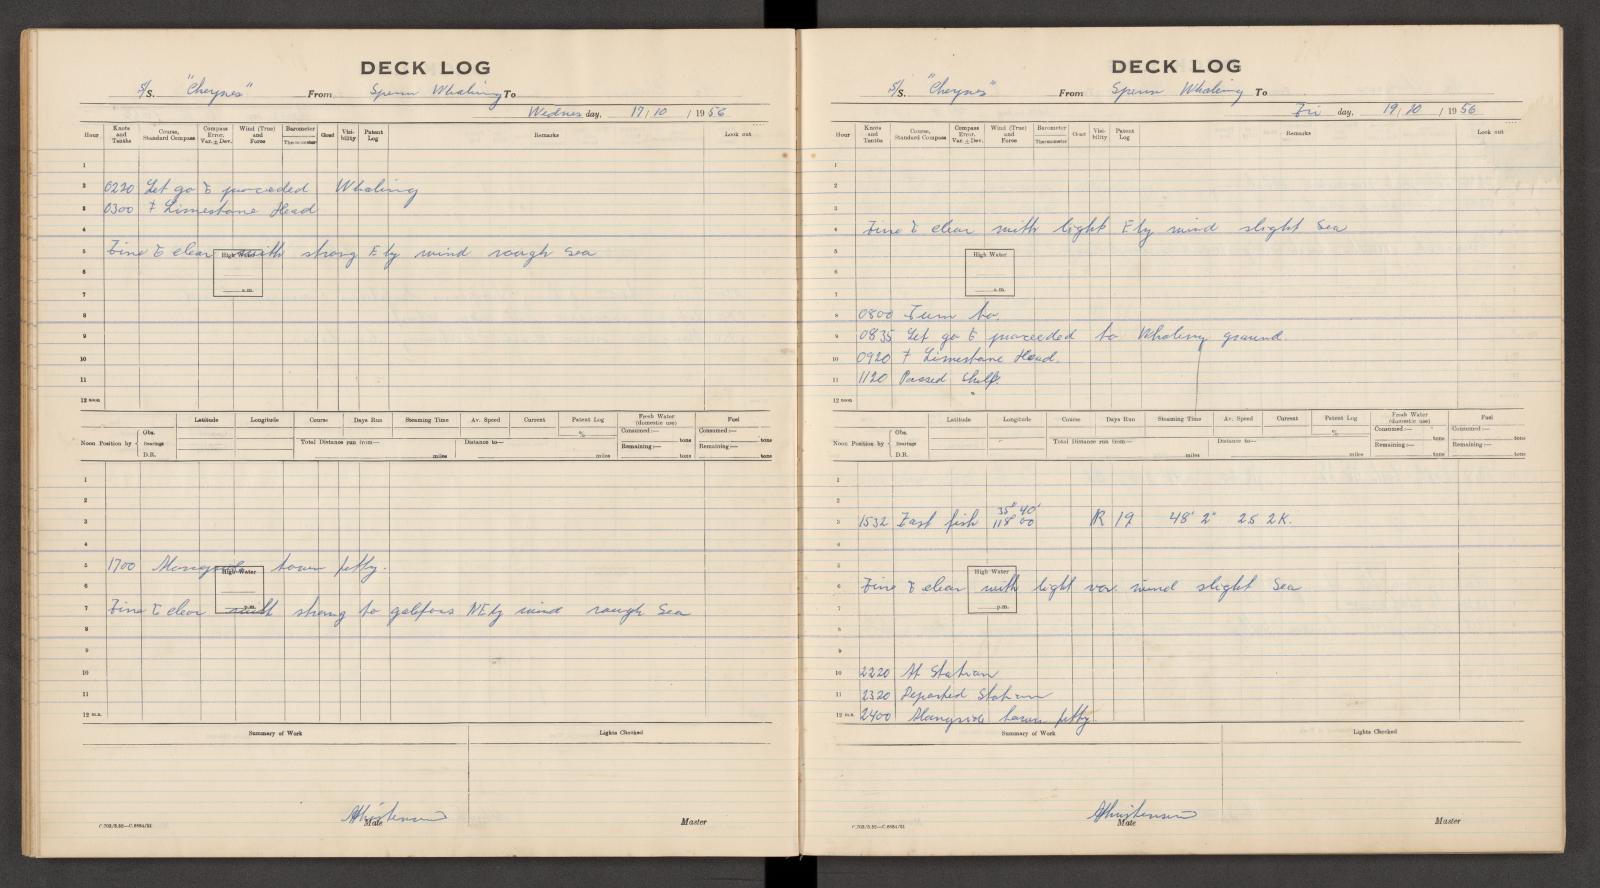 DECK LOG
S/S. "Cheynes" From Sperm Whaling To
Wednes day, 17/10 / 19 56
Hour Knots and Tenths Course, Standard Compass Compass Error. Var. ± Dev. Wind (True) and Force Barometer Thermometer Cloud Visibility Patent Log Remarks Look out
1
2 0220 Let go & proceeded Whaling
3 0300 Limestone Head
4
5 Fine & clear with strong E ly wind rough sea
High Water
6
7
a.m.
8
9
10
11
12 noon
Latitude Longitude Course Days Run Steaming Time Av. Speed Current Patent Log Fresh Water (domestic use) Fuel
Noon Position by Obs. Bearings D.R. Total Distance run from— miles Distance to— miles % Consumed:— tons Remaining:— tons Consumed:— tons Remaining:— tons
1
2
3
4
5 1700 Alongside town jetty.
High Water
6
p.m.
7 Fine & clear with strong to NEly wind rough Sea
8
9
10
11
12 m.n.
Summary of Work Lights Checked
AChristensen
Mate Master
DECK LOG
S/S. "Cheynes" From Sperm Whaling To
Fri day, 19/10 / 19 56
Hour Knots and Tenths Course, Standard Compass Compass Error. Var. ± Dev. Wind (True) and Force Barometer Thermometer Cloud Visibility Patent Log Remarks Look out
1
2
3
4 Fine & clear with light E ly wind slight Sea
5
High Water
6
7
a.m.
8 0800 Turn to.
9 0835 Let go & proceeded to Whaling ground.
10 0920 Limestone Head.
11 1120 Passed Shelf.
12 noon
Latitude Longitude Course Days Run Steaming Time Av. Speed Current Patent Log Fresh Water (domestic use) Fuel
Noon Position by Obs. Bearings D.R. Total Distance run from— miles Distance to— miles % Consumed:— tons Remaining:— tons Consumed:— tons Remaining:— tons
1
2
3 1532 Fast fish 35° 40' 118° 00 R 19 48' 2" 2S 2K.
4
5
High Water
6 Fine & clear with light var. wind slight Sea
7
p.m.
8
9
10 2220 At Station
11 2320 Departed Station
12 m.n. 2400 Alongside town jetty.
Summary of Work Lights Checked
AChristensen
Mate Master